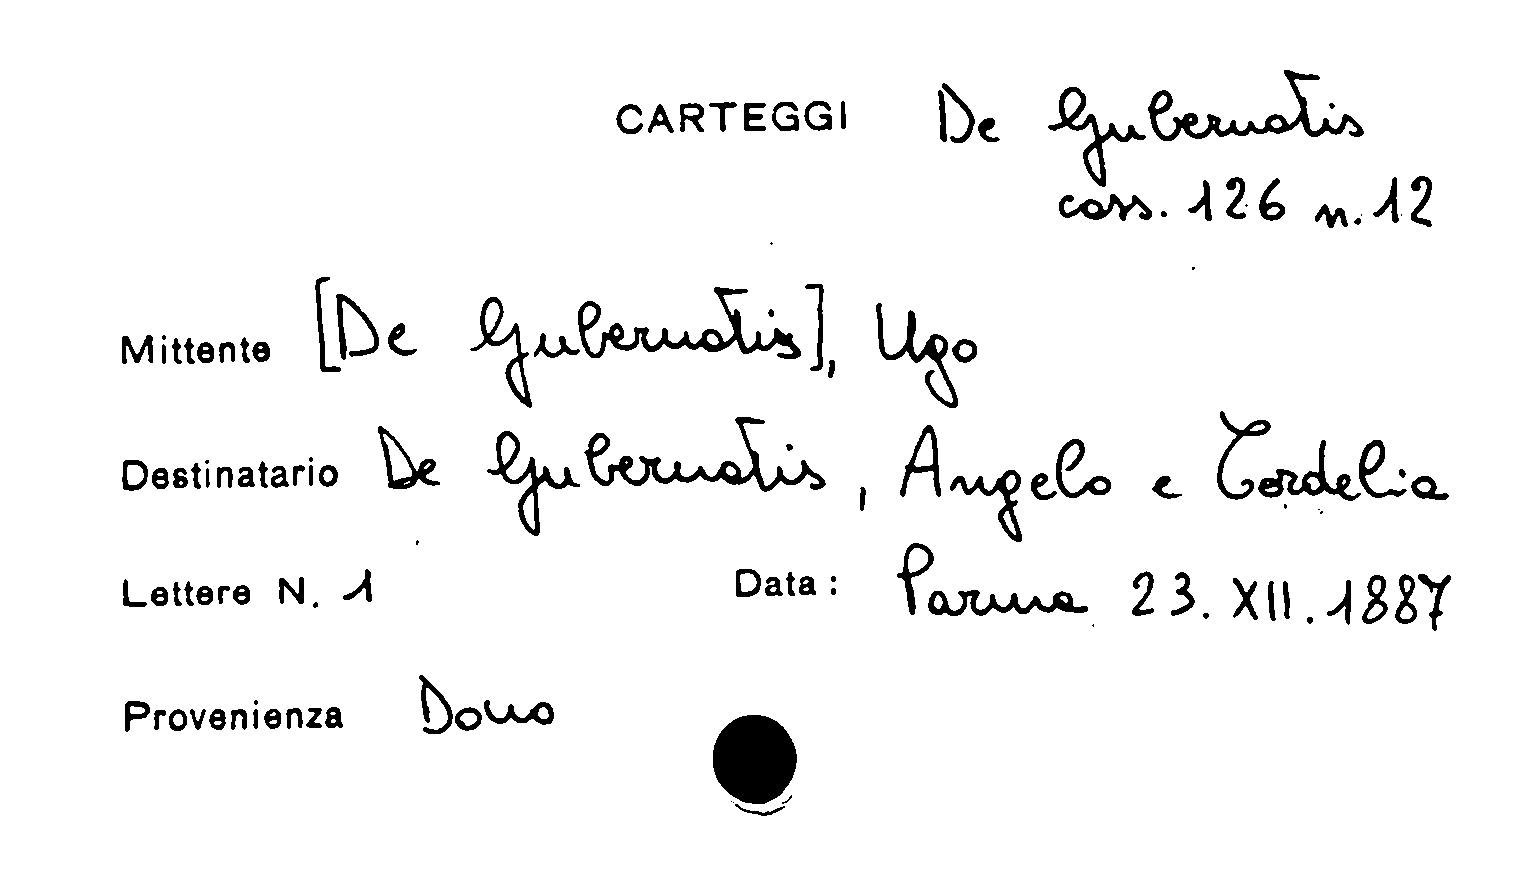 CARTEGGI De Gubernatis
cass. 126 n. 12
Mittente [De Gubernatis], Ugo
Destinatario De Gubernatis, Angelo e Cordelia
Lettere N. 1 Data: Parma 23. XII. 1887
Provenienza Dono